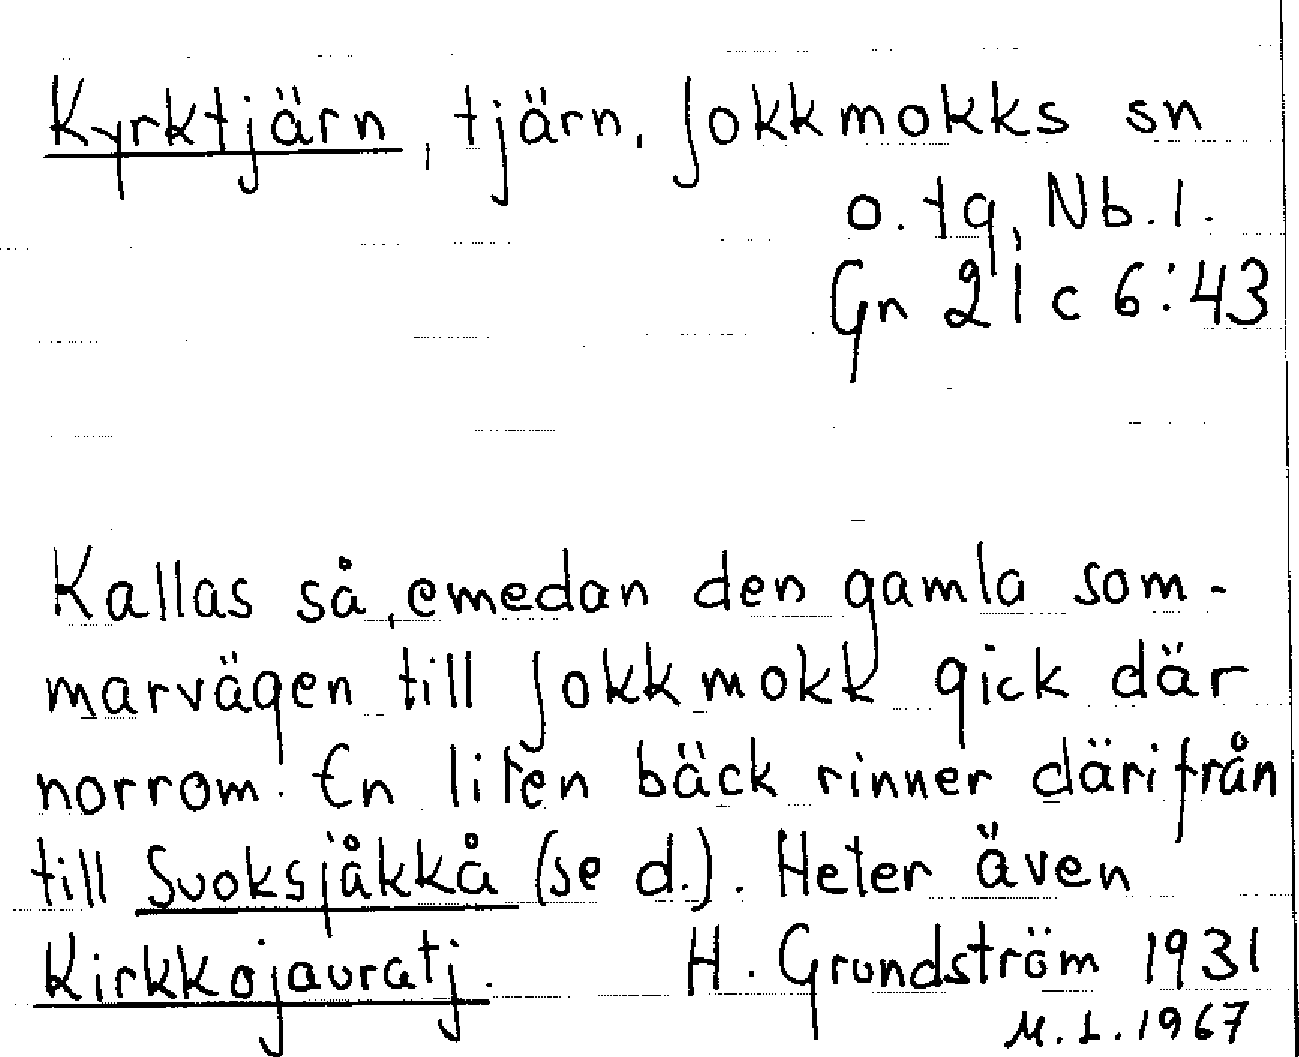 Kyrktjärn, tjärn, Jokkmokks sn
o. tg, Nb. l.
Gn 21 c 6:43
Kallas så, emedan den gamla som-
marvägen till Jokkmokk gick där
norrom. En liten bäck rinner därifrån
till Suoksjåkkå (se d.). Heter även
Kirkkojauratj. H. Grundström 1931
M. L. 1967